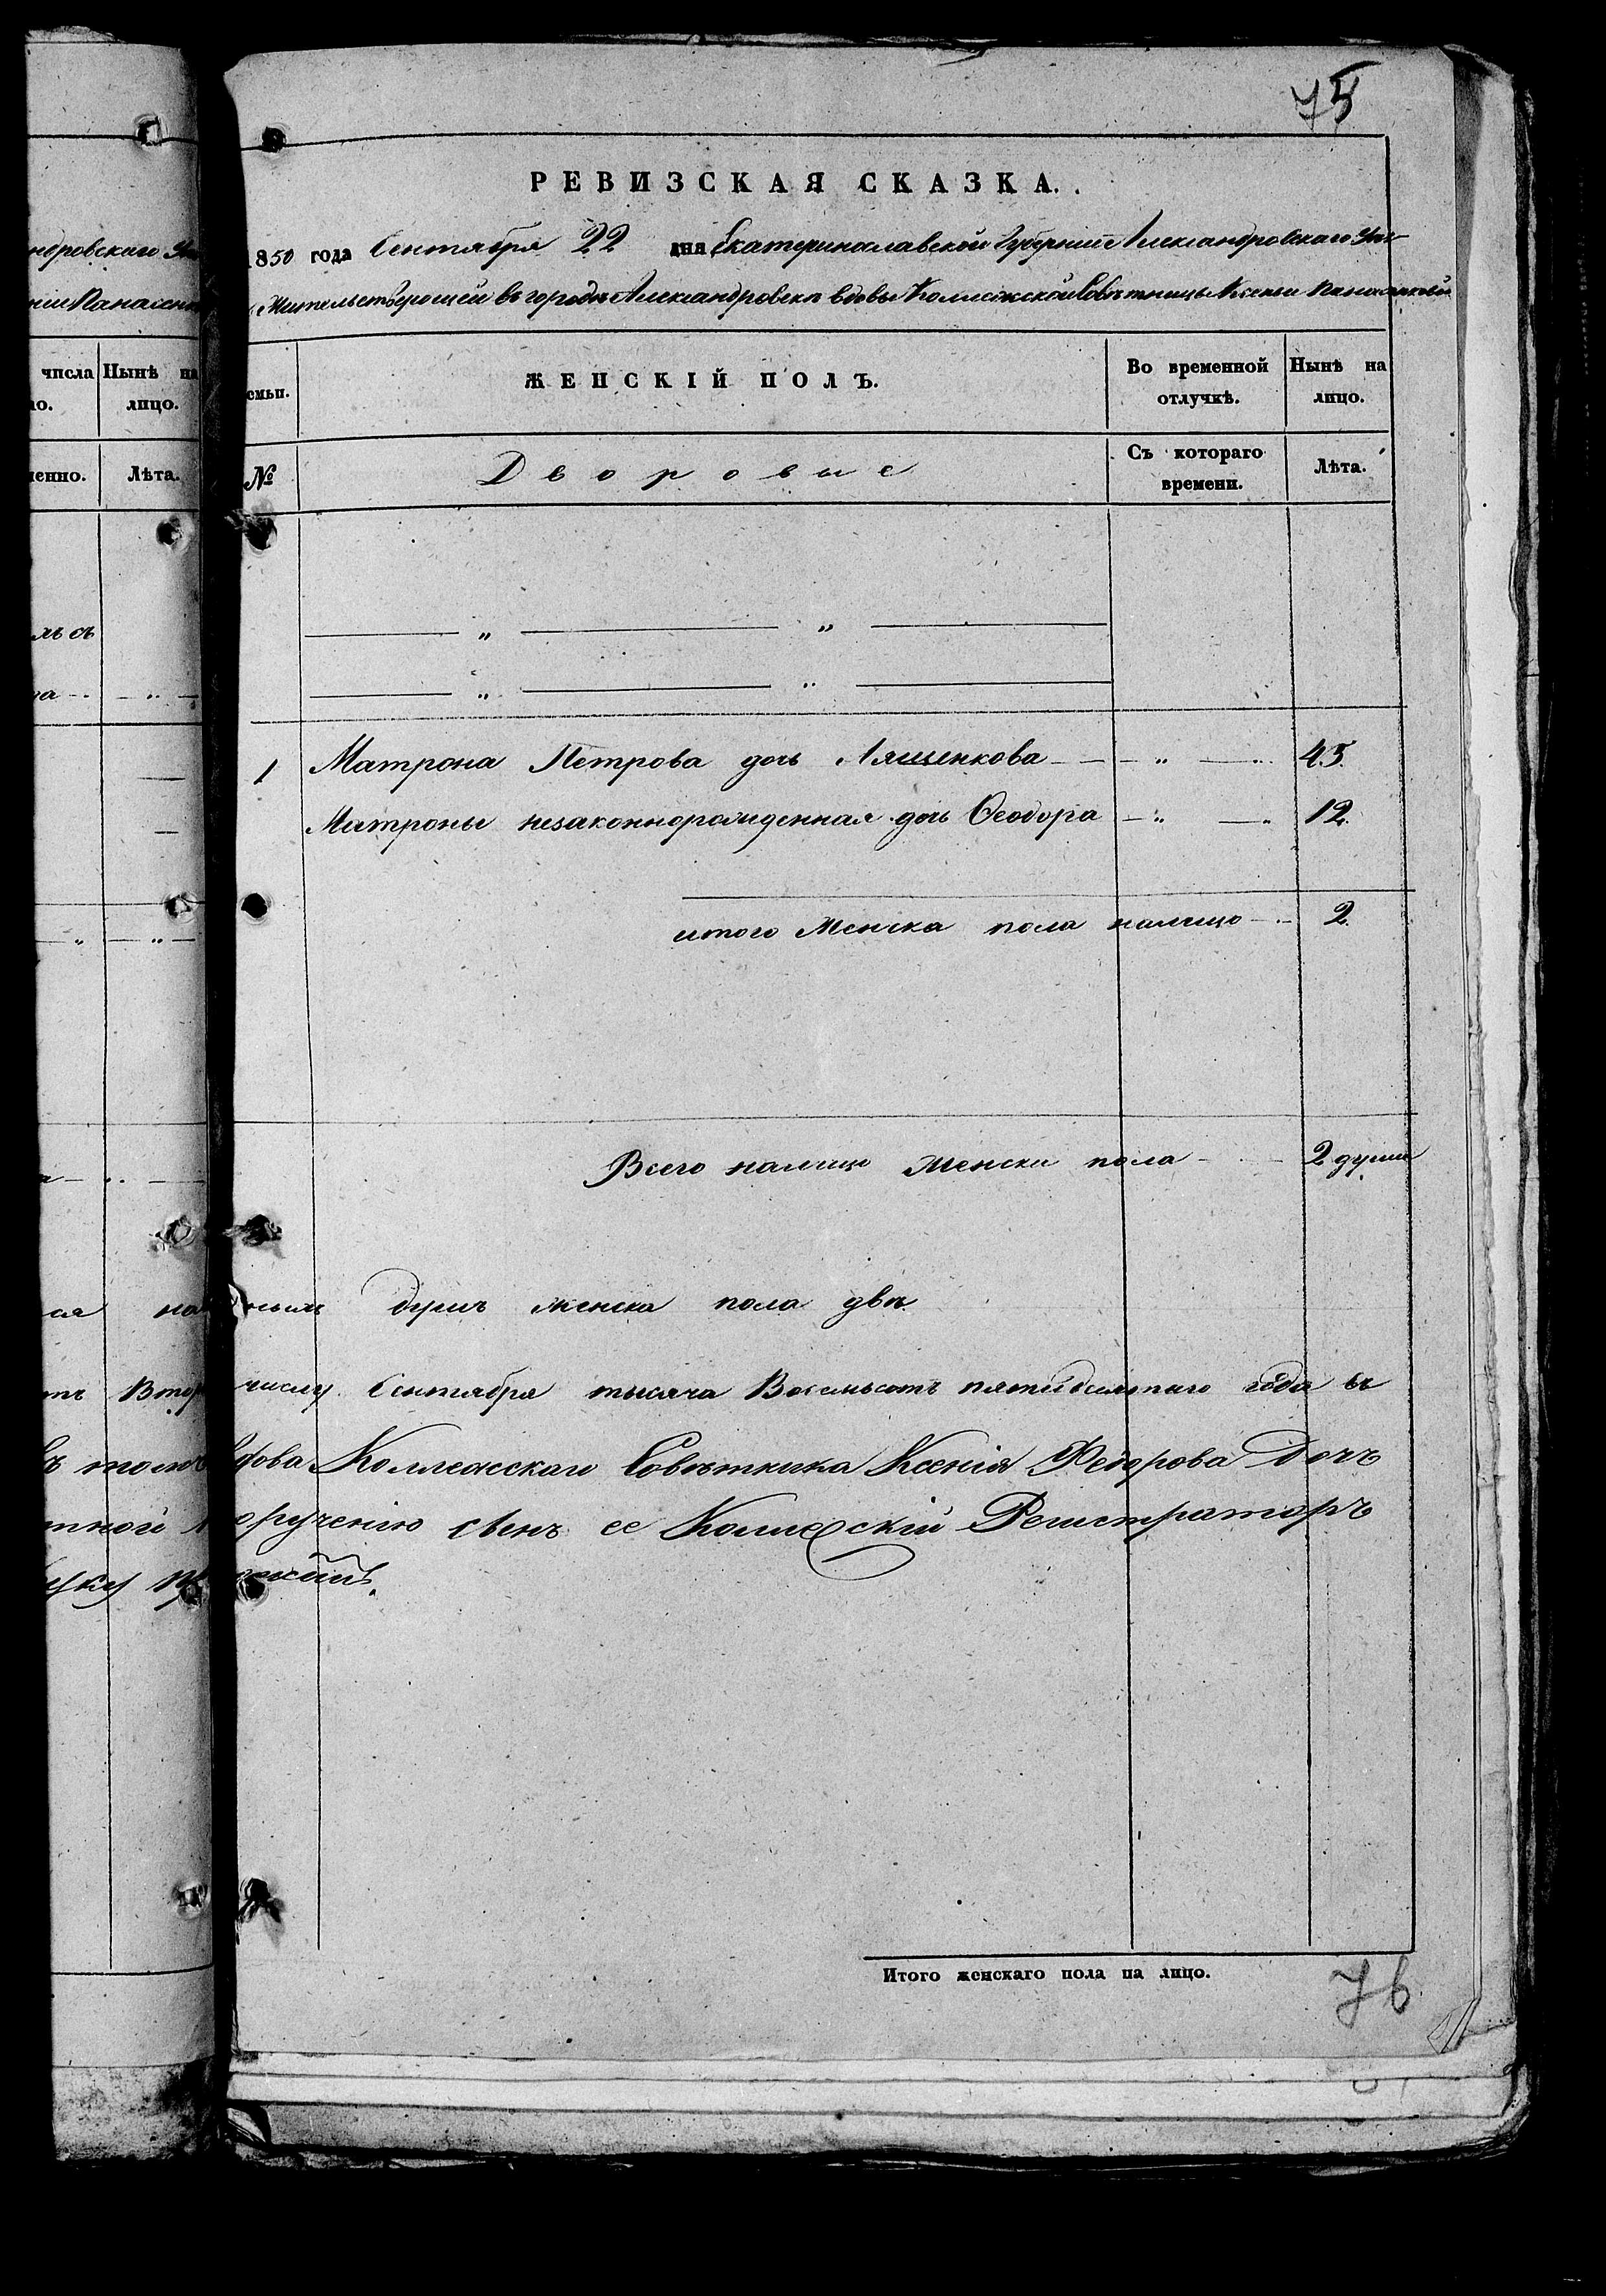 75
РЕВИЗСКАЯ СКАЗКА.
1850 года Сентября 22 дня Екатеринославской Губернии Александровскаго Уез
Жительствующей въ городѣ Александровскѣ вдовы Коллежской Совѣтницы Ксеньи Панасенковой
числа Нынѣ на
лицо.
семьи.
ЖЕНСКІЙ ПОЛЪ.
Во временной
отлучкѣ.
Нынѣ на
лицо.
Лѣта.
№
Дворовые
Съ котораго
времени.
Лѣта.
1 Матрона Петрова дочь Лященкова — „ — 45.
Матроны незаконнорожденная дочь Ѳеодора — „ — 12.
итого Женска пола налицо — 2.
Всего налицо Женска пола — 2 души
душъ женска пола двѣ
числу Сентября тысяча Восемьсотъ пятидесятаго года въ
Коллежскаго Совѣтника Ксенія Федорова Дочь
оручению сынъ ее Коллежскій Регистраторъ
Итого женскаго пола на лицо.
76